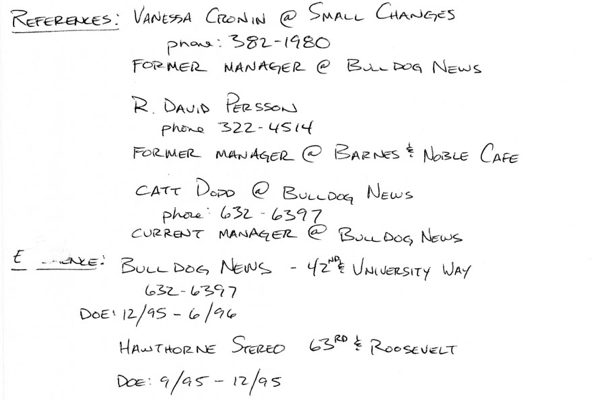 REFERENCES: VANESSA CRONIN @ SMALL CHANGES
phone: 382-1980
FORMER MANAGER @ BULLDOG NEWS
R. DAVID PERSSON
phone 322-4514
FORMER MANAGER @ BARNES & NOBLE CAFE
CATT DODD @ BULLDOG NEWS
phone: 632-6397
CURRENT MANAGER @ BULLDOG NEWS
BULLDOG NEWS - 42ND & UNIVERSITY WAY
632-6397
DOE: 12/95 - 6/96
HAWTHORNE STEREO 63RD & ROOSEVELT
DOE: 9/95 - 12/95